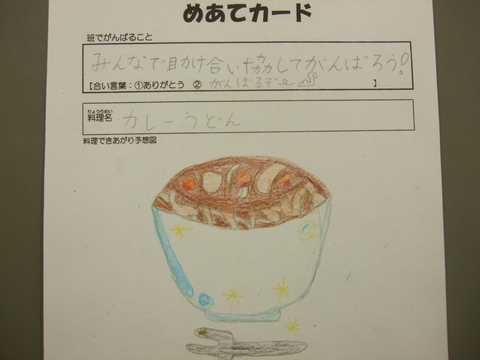 めあてカード
班でがんばること
みんなで助け合い協力してがんばろう!
【合い言葉:①ありがとう ②がんばるぞ 】
りょうりめい
料理名
カレーうどん
料理できあがり予想図